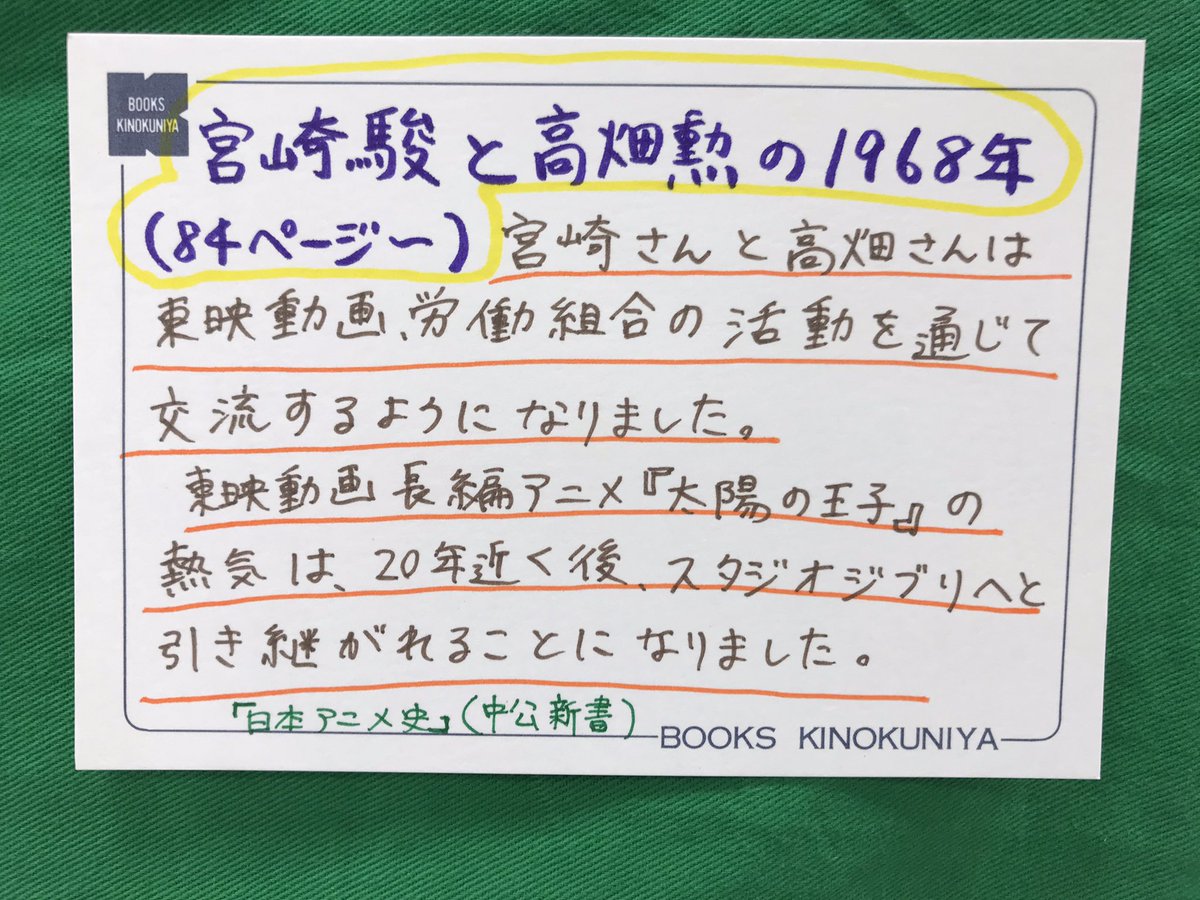 BOOKS
KINOKUNIYA
宮崎駿と高畑勲の1968年
(84ページ〜)宮崎さんと高畑さんは
東映動画、労働組合の活動を通じて
交流するようになりました。
東映動画長編アニメ『太陽の王子』の
熱気は、20年近く後、スタジオジブリへと
引き継がれることになりました。
『日本アニメ史』(中公新書)
BOOKS KINOKUNIYA